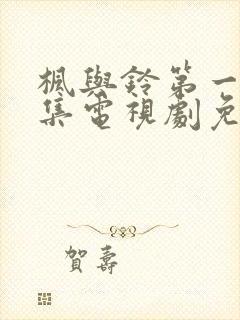 楓與鈴第一
集電視劇免
賀壽